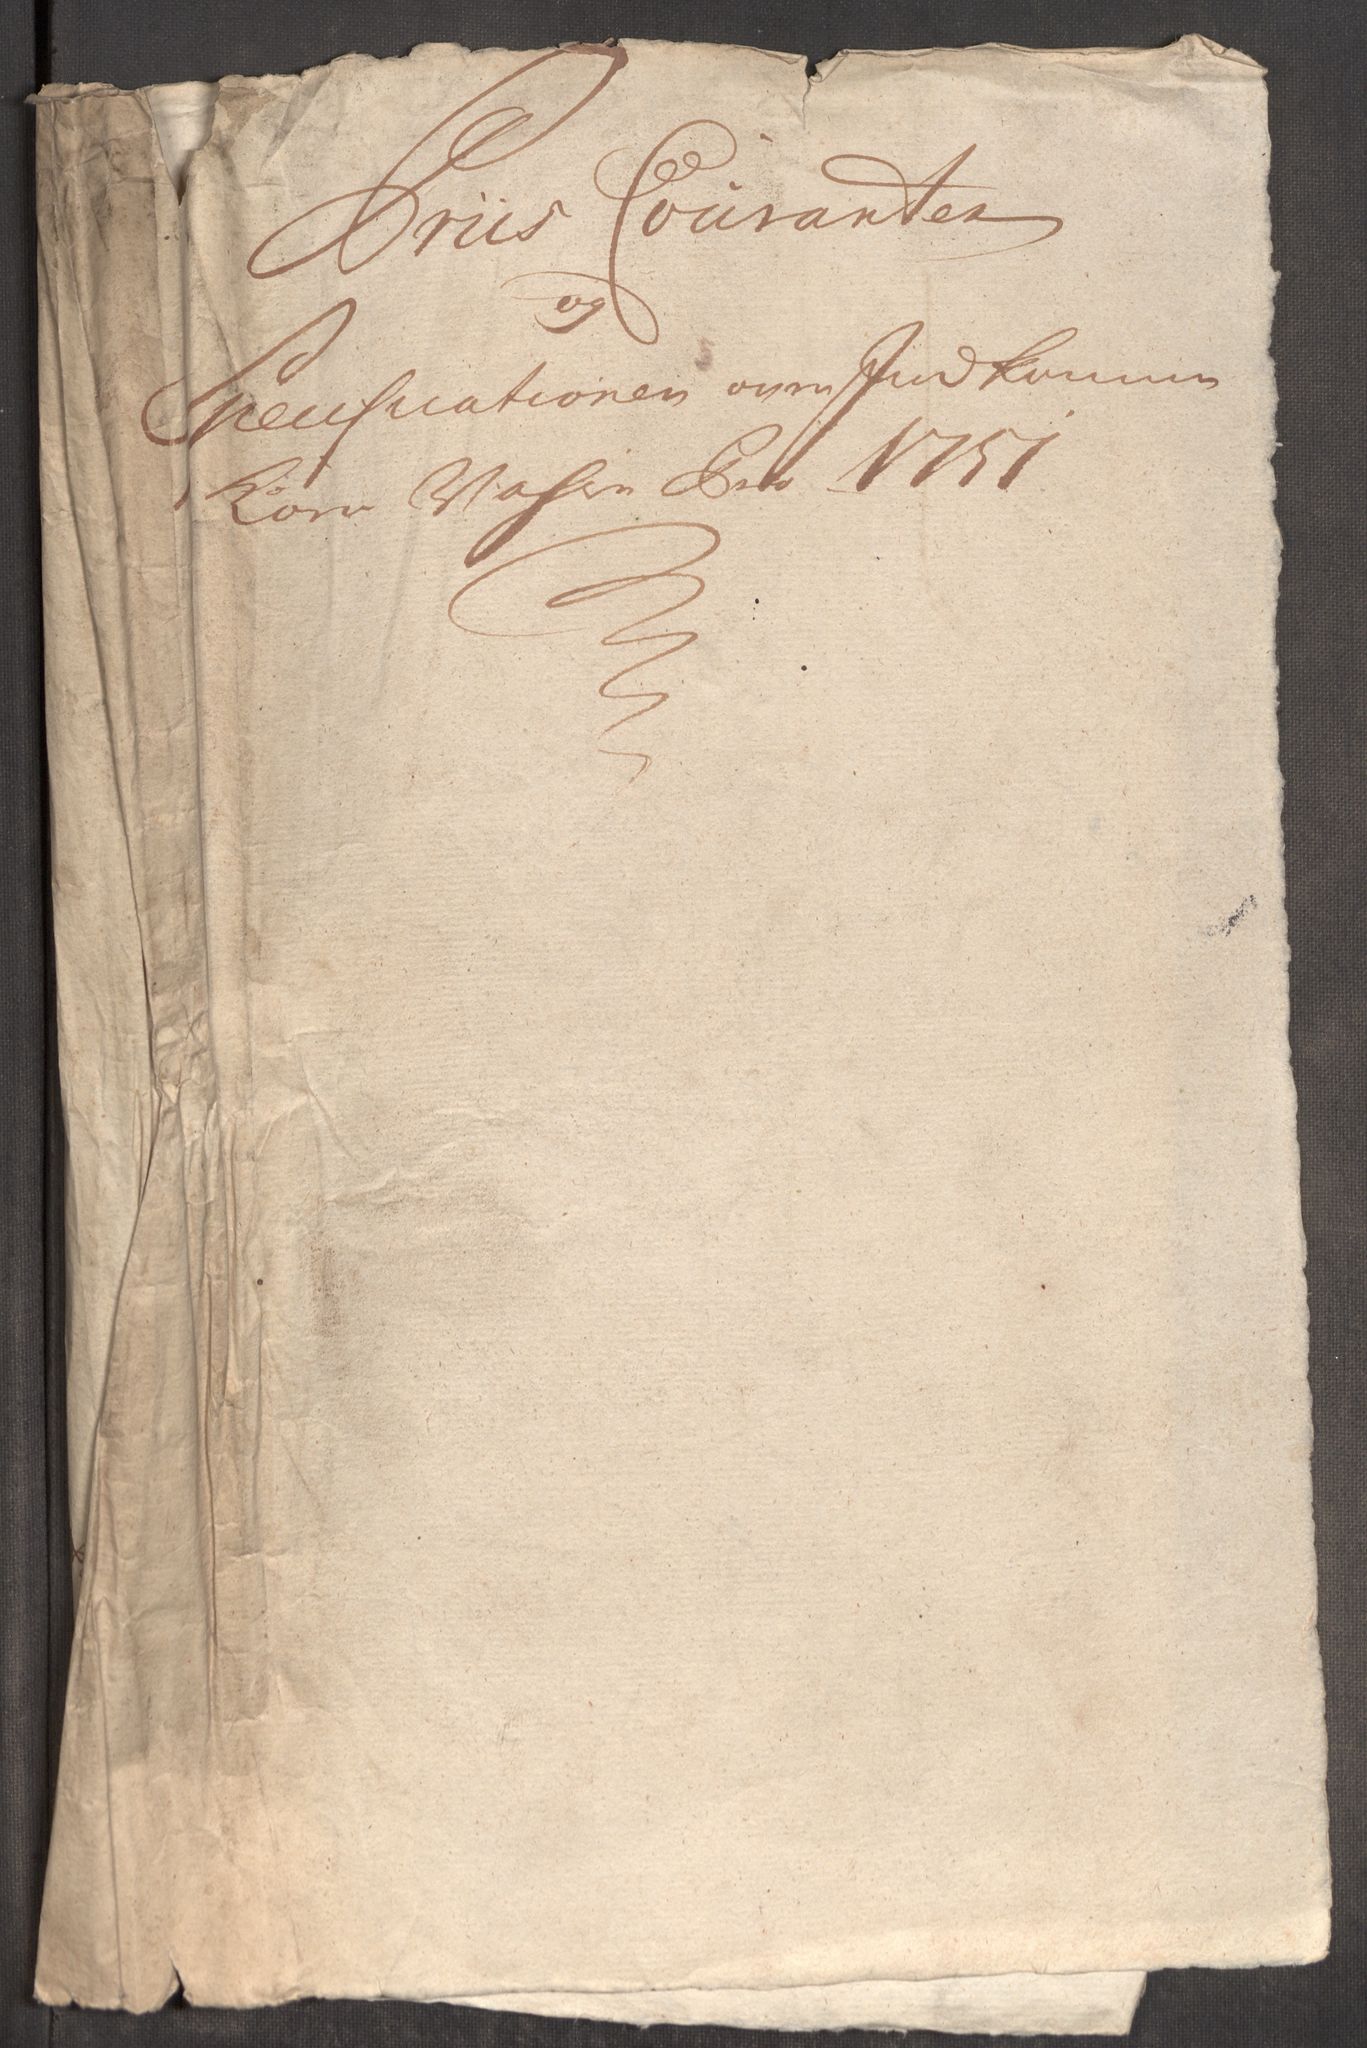 Priis Couranten
og
Specificationen over Indkomne
Korn Vahre Pro 1751